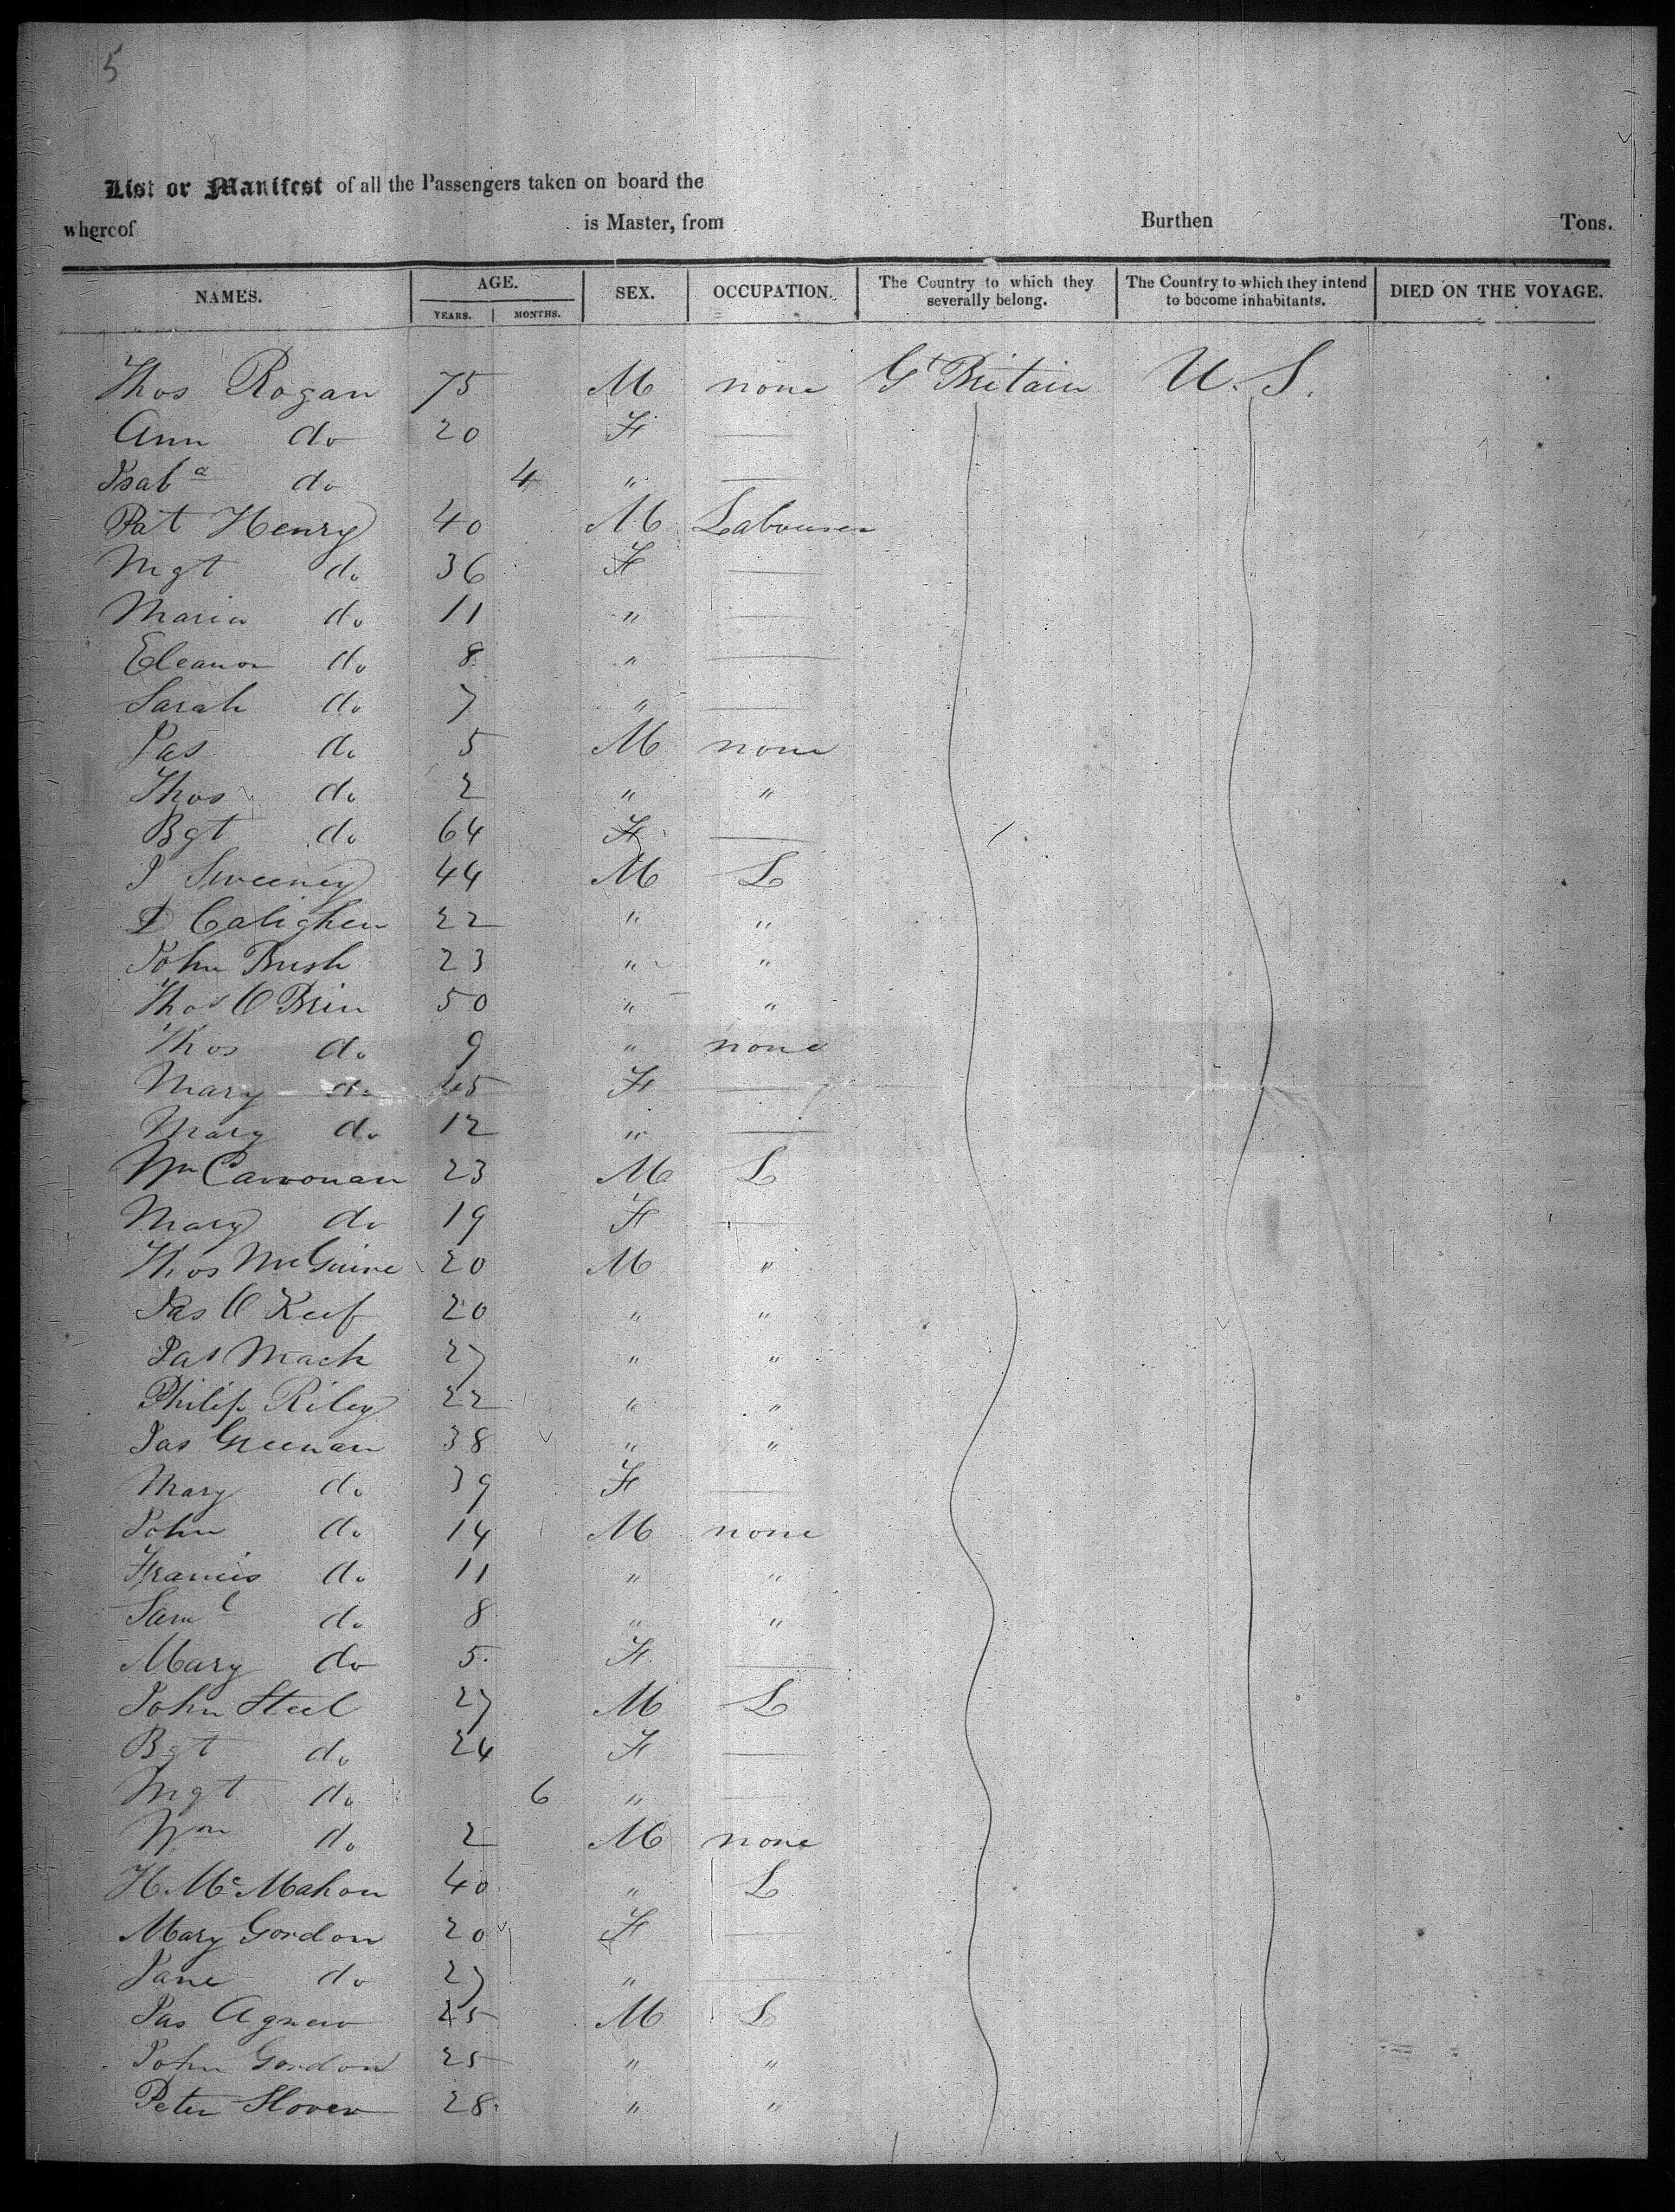 5
List or Manifest of all the Passengers taken on board the
whereof is Master, from Burthen Tons.
NAMES. AGE. SEX. OCCUPATION. The Country to which they severally belong. The Country to which they intend to become inhabitants. DIED ON THE VOYAGE.
YEARS. MONTHS.
Thos Rogan 75 M none Gt Britain U. S.
Ann do 20 F —
Isaba do 4 " —
Pat Henry 40 M Labourer
Mgt do 36 F —
Maria do 11 " —
Eleanor do 8 " —
Sarah do 7 " —
Jas do 5 M none
Thos do 2 " "
Bgt do 64 F —
J Sweeney 44 M L
Calighen 22 " "
John Bush 23 " "
Thos O Brin 50 " "
Thos do 9 " none
Mary do 45 F —
Mary do 12 " —
Wm Cavvonan 23 M L
Mary do 19 F —
Thos McGuire 20 M "
Jas O Keef 20 " "
Pat Mack 27 " "
Philip Riley 22 " "
Jas Greenan 38 " "
Mary do 39 F —
John do 14 M none
Francis do 11 " "
Saml do 8 " "
Mary do 5 F —
John Steel 27 M L
Bgt do 24 F —
Mgt do 6 " —
Wm do 2 M none
H. McMahon 40 " L
Mary Gordon 20 F —
Jane do 27 " —
Jas Agnew 25 M L
John Gordon 25 " "
Peter Slover 28 " "